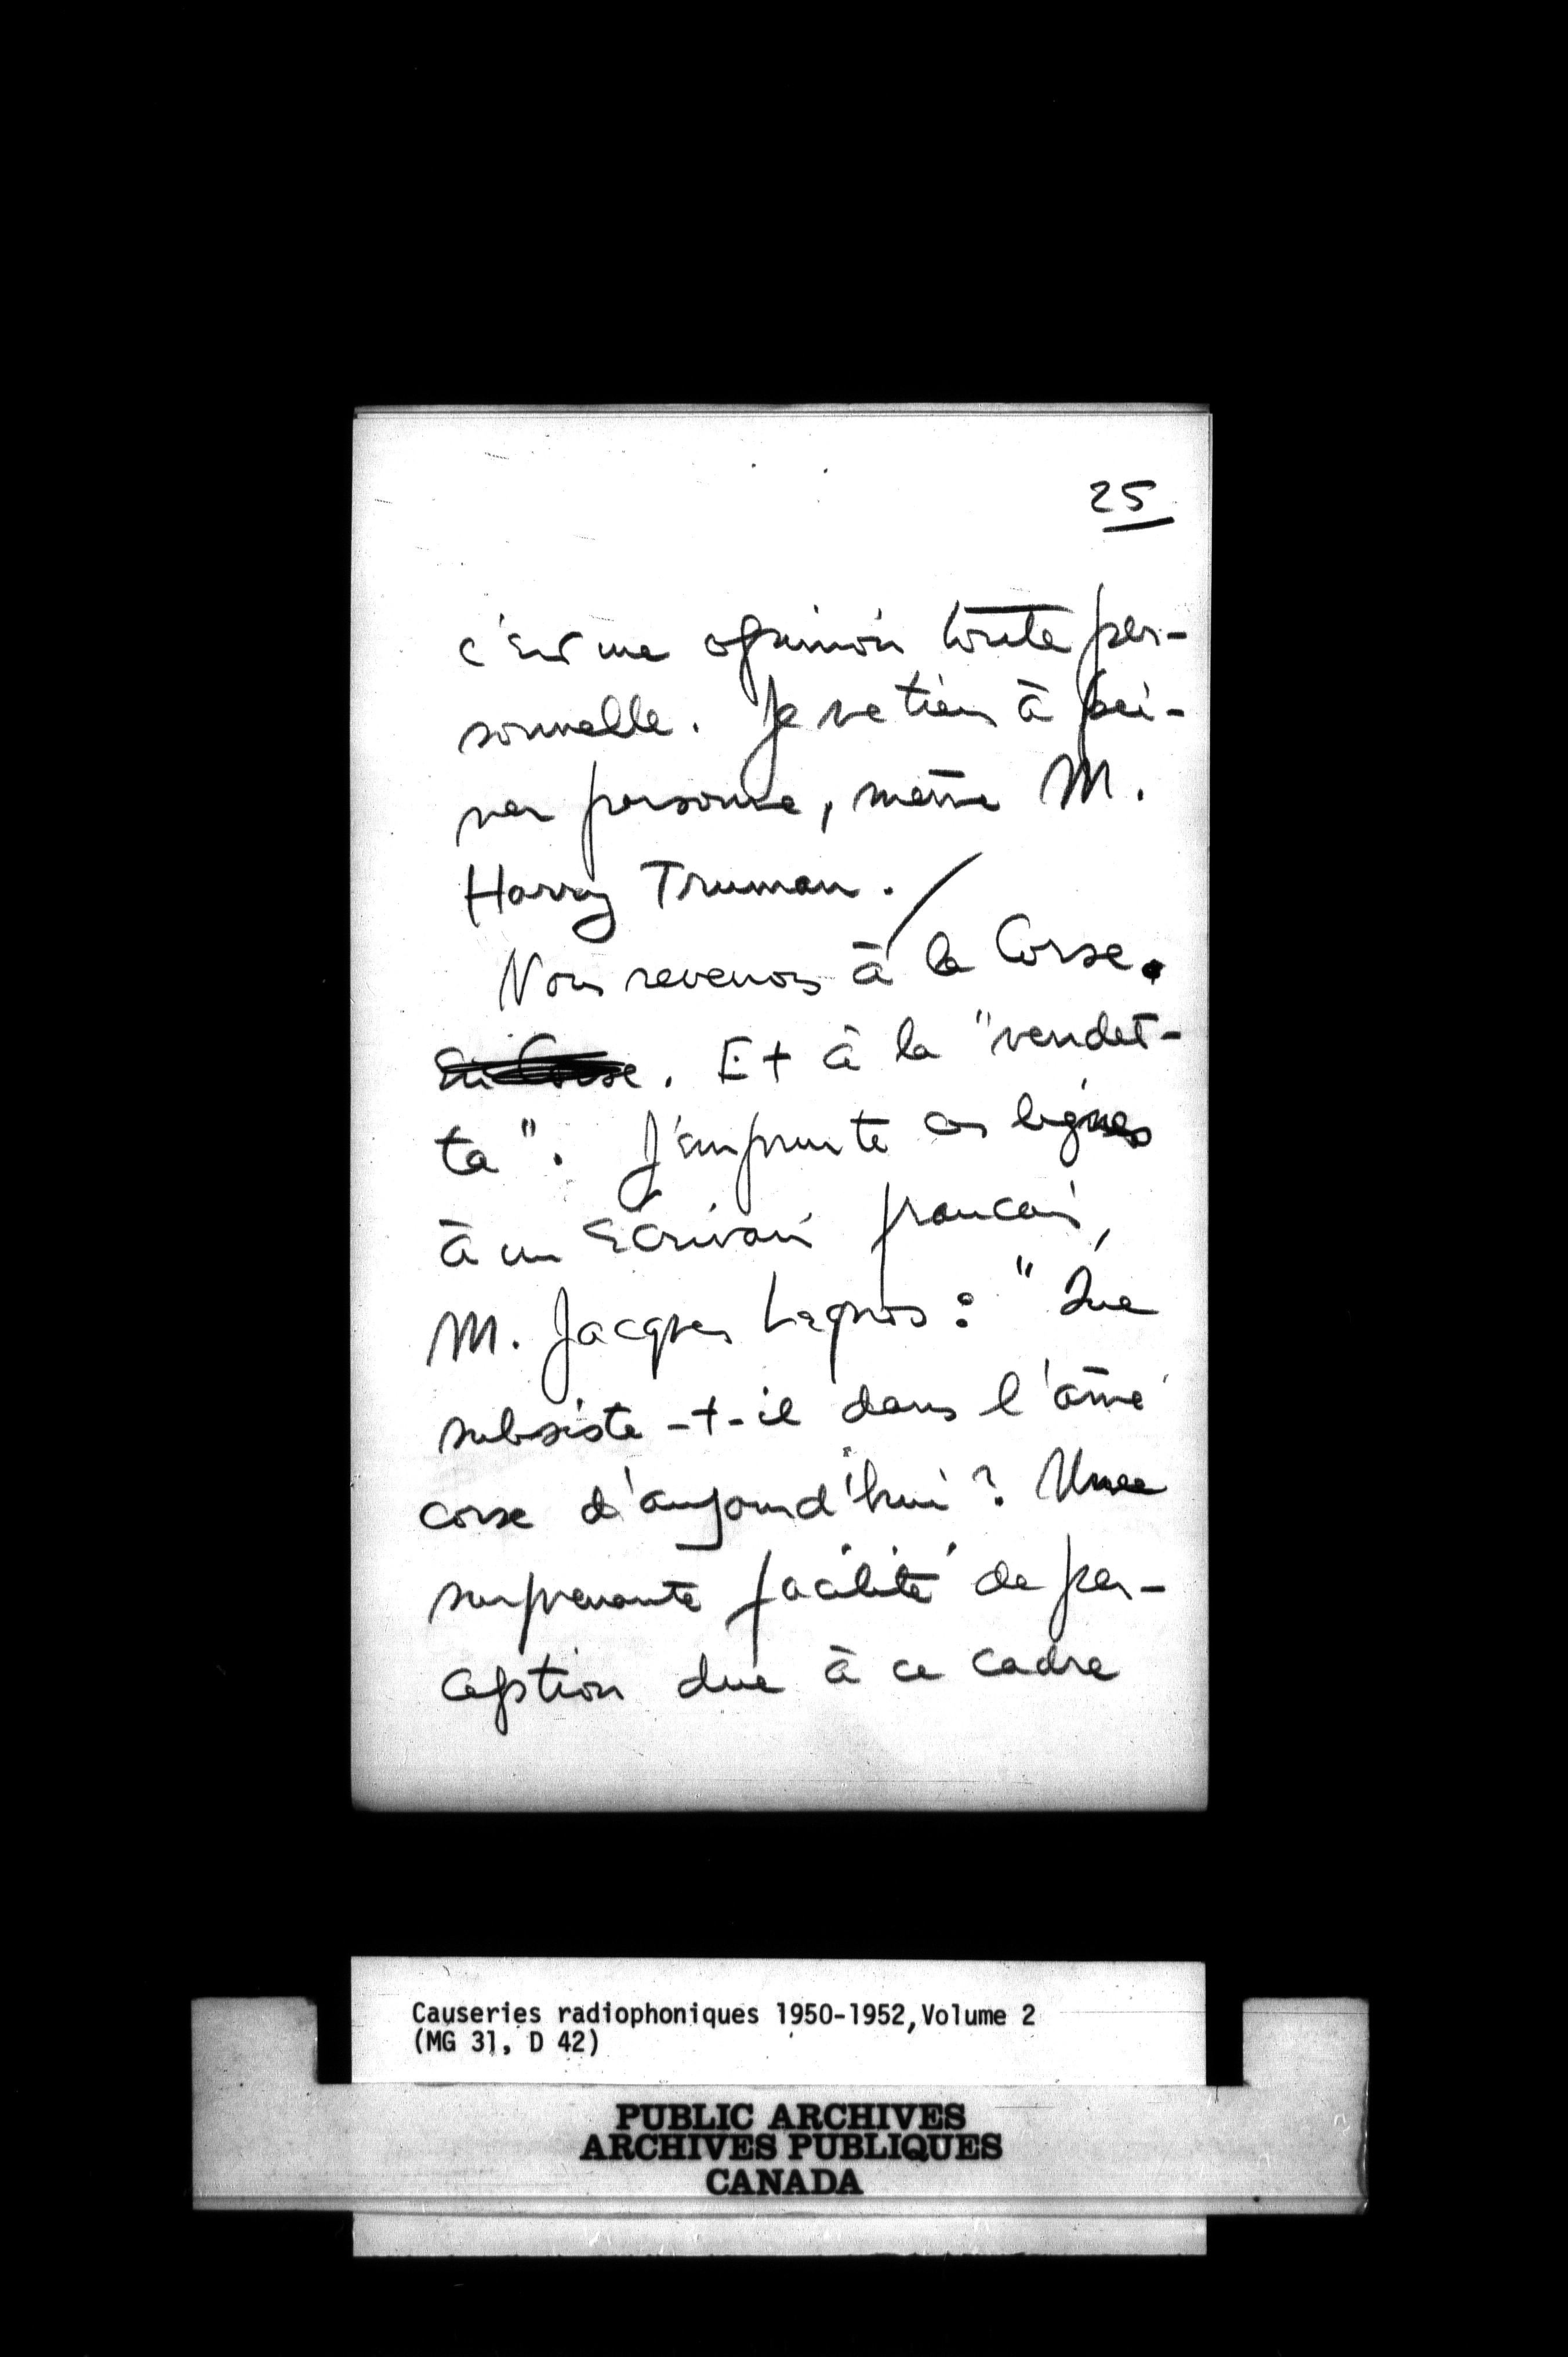 25
c'est une opinion toute per-
sonnelle. Je ne tiens à pei-
ner personne, même M.
Harry Truman.
Nous revenons à la Corse.
. Et à la "vendet-
ta". J'emprunte ces lignes
à un écrivain français,
M. Jacques Legros : "Que
subsiste-t-il dans l'âme
corse d'aujourd'hui ? Une
surprenante facilité de per-
ception due à ce cadre
Causeries radiophoniques 1950-1952, Volume 2
(MG 31, D 42)
PUBLIC ARCHIVES
ARCHIVES PUBLIQUES
CANADA